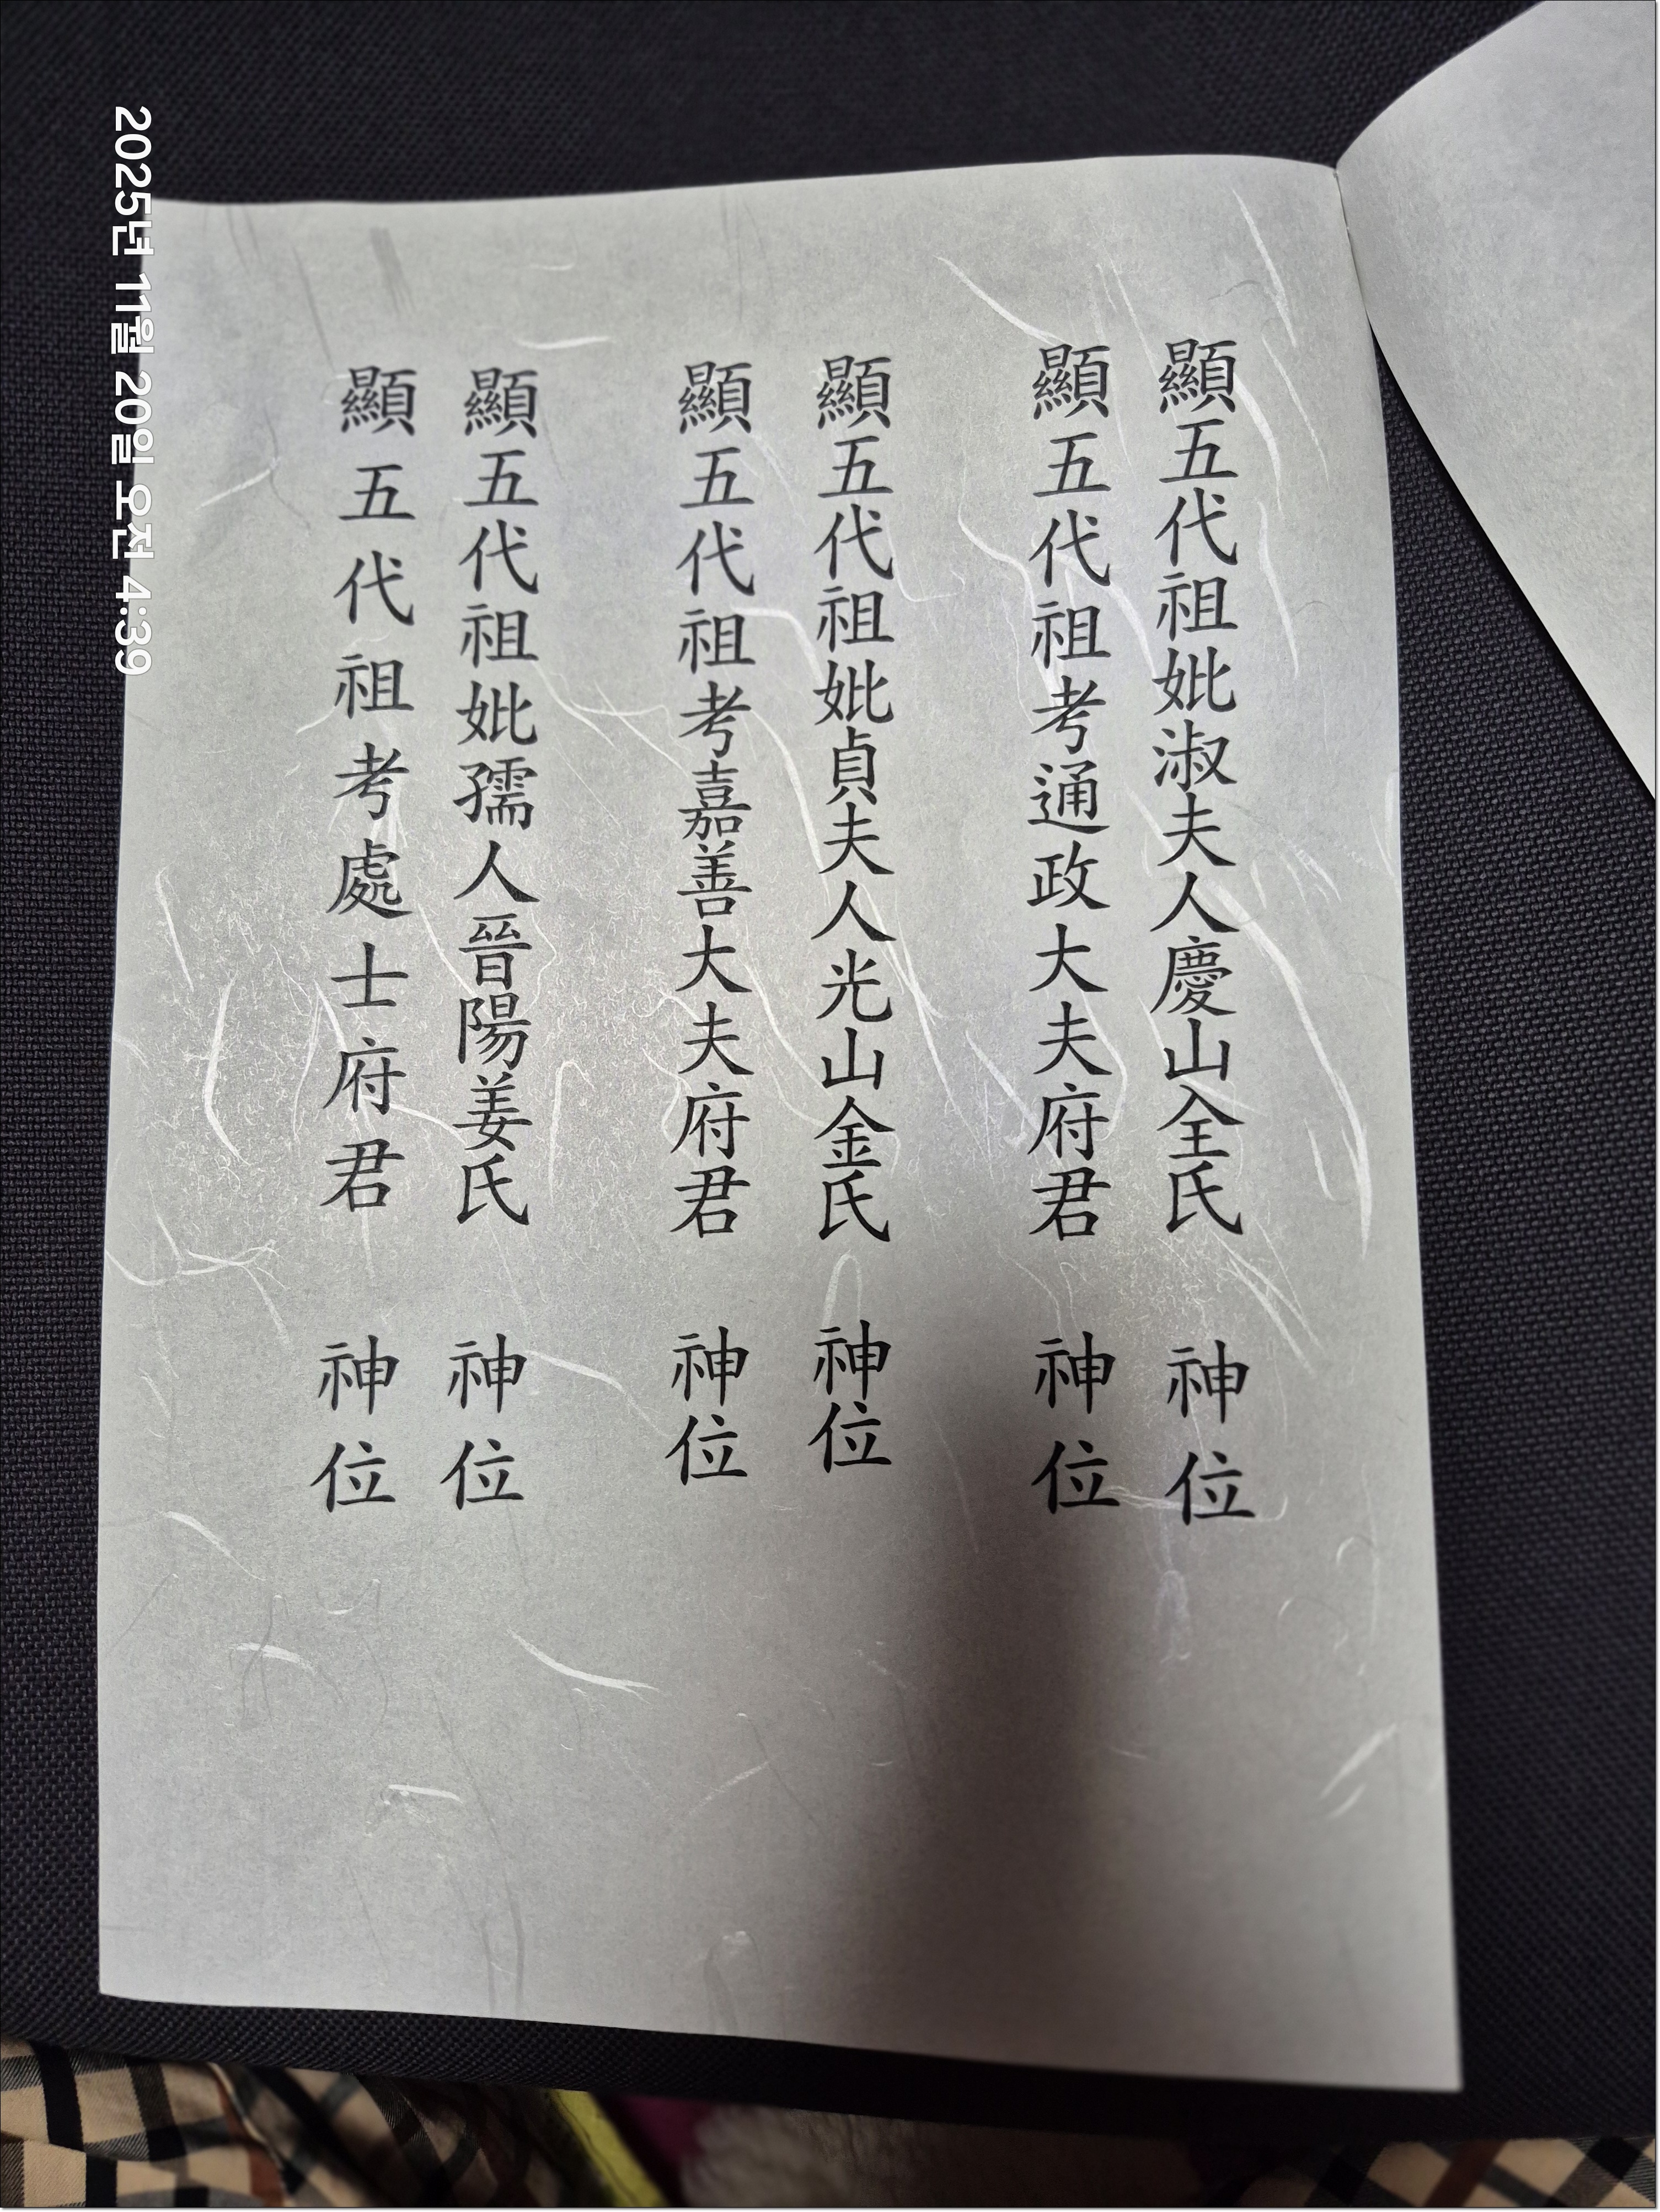 顯五代祖妣淑夫人慶山全氏 神位
顯五代祖考通政大夫府君 神位
顯五代祖妣貞夫人光山金氏 神位
顯五代祖考嘉善大夫府君 神位
顯五代祖妣孺人晉陽姜氏 神位
顯五代祖考處士府君 神位
2025년 11월 20일 오전 4:39